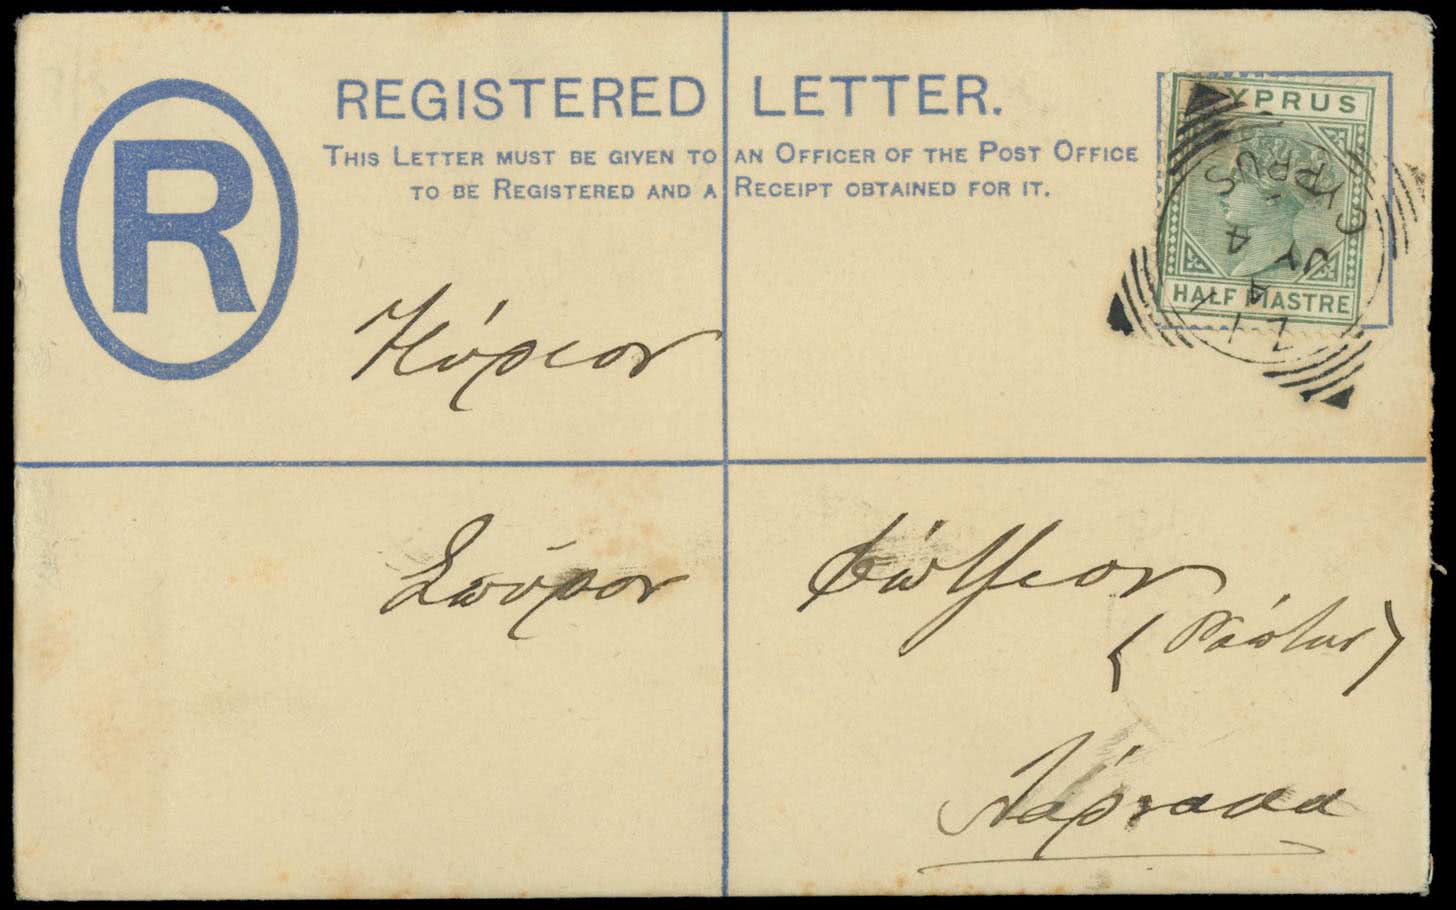 REGISTERED LETTER.
THIS LETTER MUST BE GIVEN TO AN OFFICER OF THE POST OFFICE
TO BE REGISTERED AND A RECEIPT OBTAINED FOR IT.
R
CYPRUS
HALF PIASTRE
CYPRUS
A
JY 4
Κύριον
Σπύρον
Λάρνακα